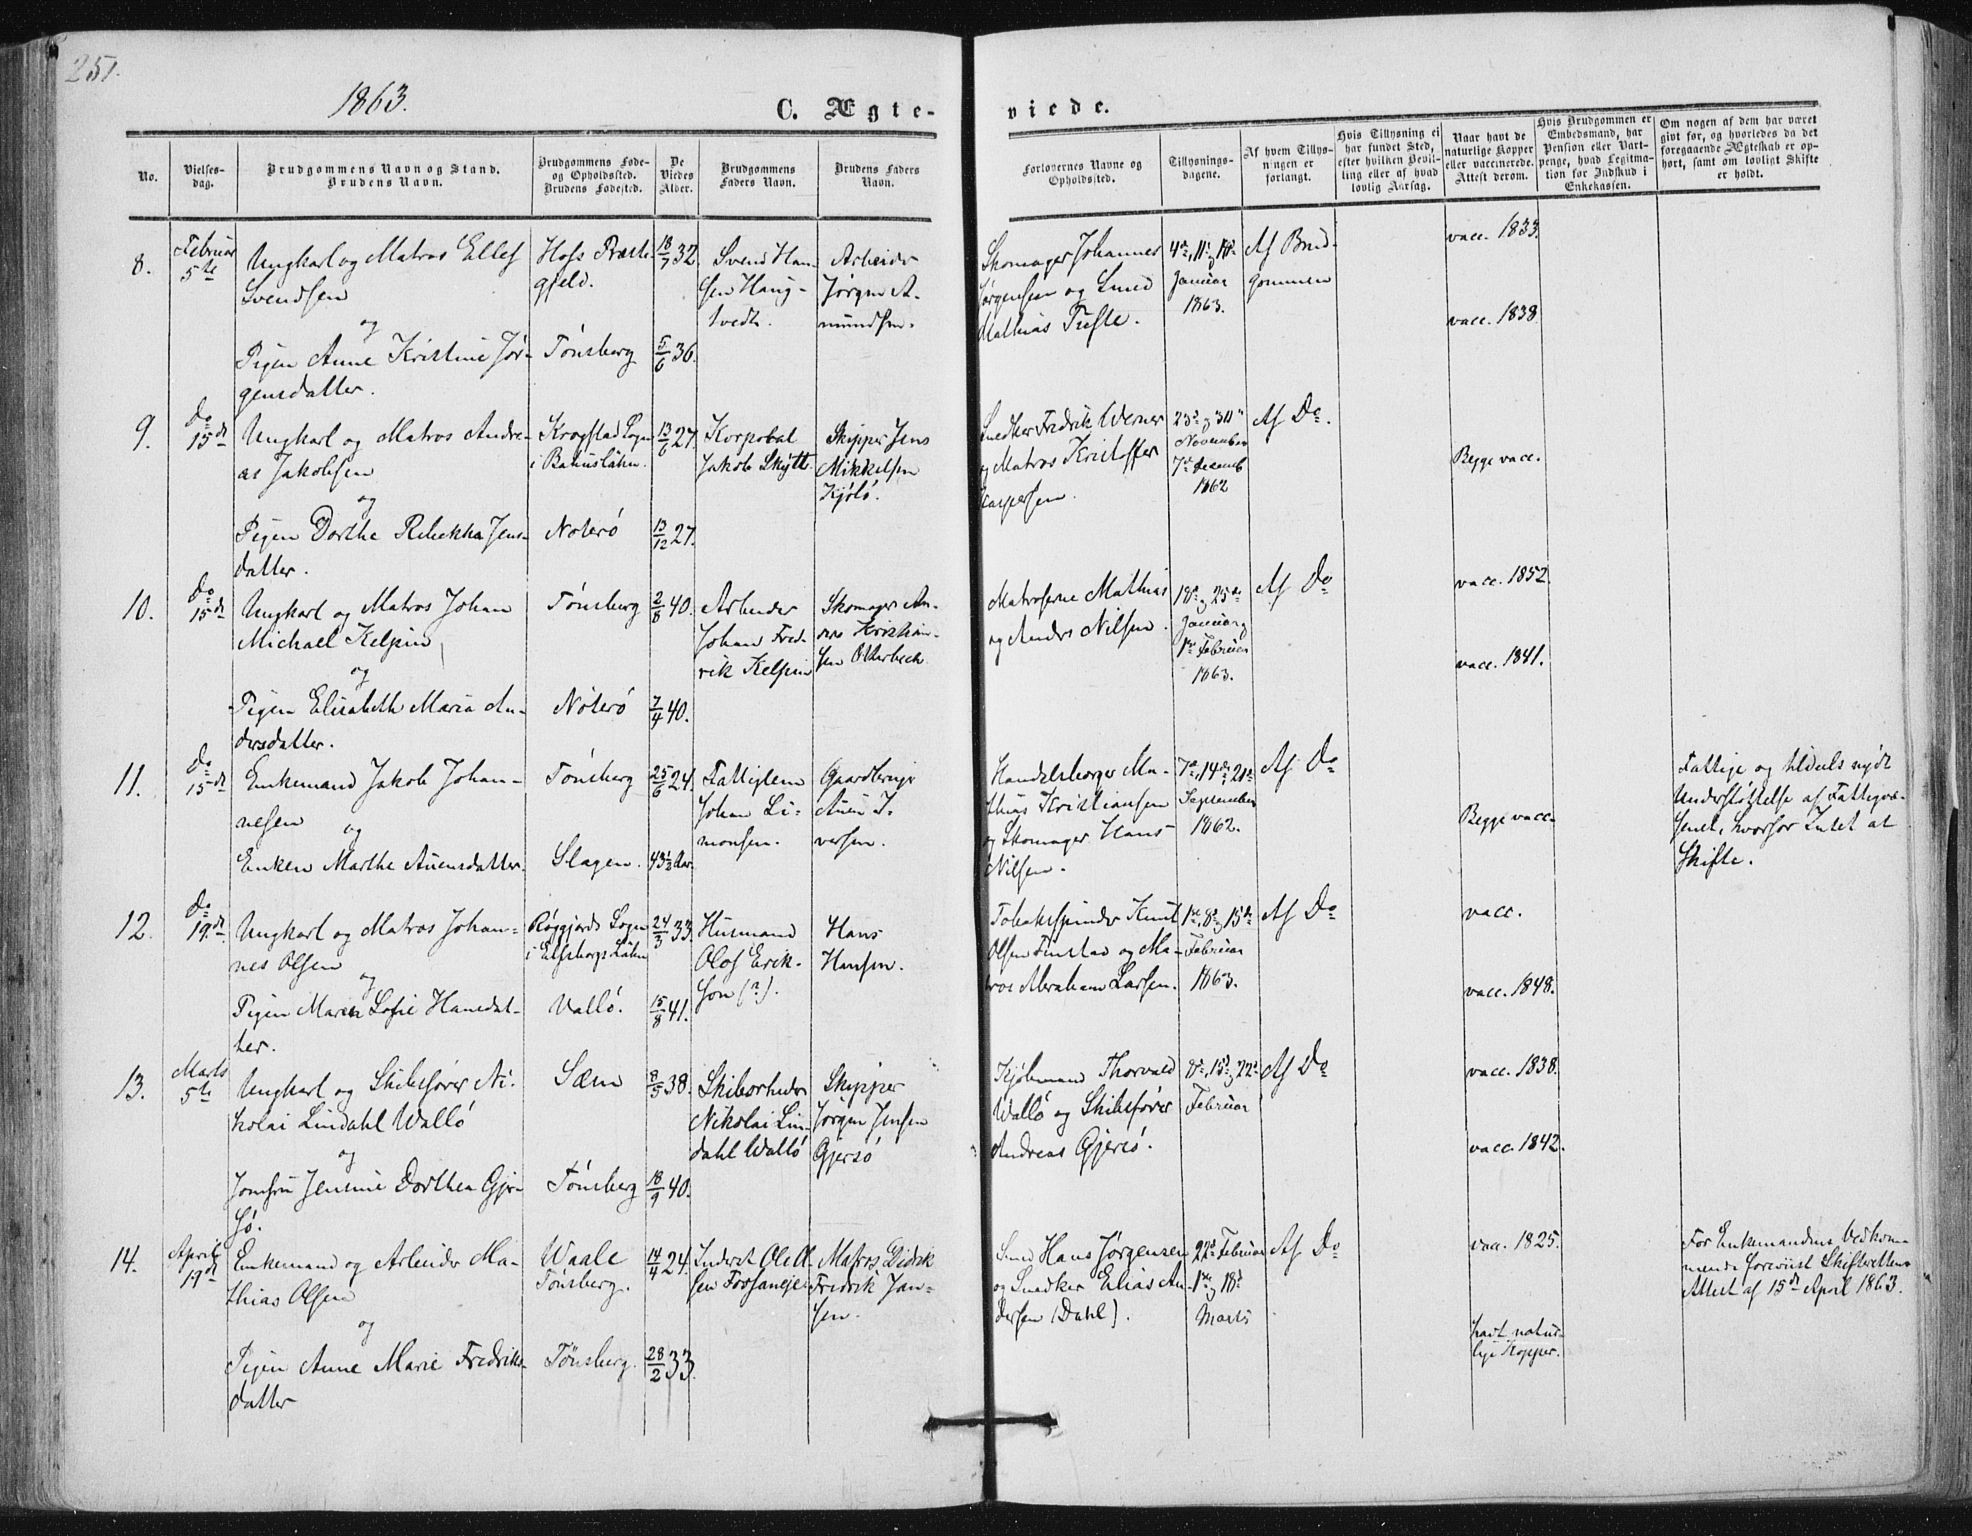 251.
1863.
C. Ægte-
viede.
No.
Vielses-
dag.
Brudgommens Navn og Stand.
Brudens Navn.
Brudgommens Føde-
og Opholdssted.
Brudens Fødested.
De
Viedes
Alder.
Brudgommens
Faders Navn.
Brudens Faders
Navn.
Forlovernes Navne og
Opholdssted.
Tillysnings-
dagene.
Af hvem Tillys-
ningen er
forlangt.
Hvis Tillysning ei
har fundet Sted,
efter hvilken Bevil-
ling eller af hvad
lovlig Aarsag.
Naar havt de
naturlige Kopper
eller vaccinerede.
Attest derom.
Hvis Brudgommen er
Embedsmand, har
Pension eller Vart-
penge, hvad Legitima-
tion for Indskud i
Enkekassen.
Om nogen af dem har været
givt før, og hvorledes da det
foregaaende Ægteskab er op-
hørt, samt om lovligt Skifte
er holdt.
8.
Februar
5te
Ungkarl og Matros Ellef
Svendsen
og
Pigen Anne Kristine Jør-
gensdatter.
Hofs Præste-
gjeld.
Tønsberg
18/7 32.
5/6 36.
Svend Han-
sen Haug-
tvedt.
Arbeider
Jørgen A-
mundsen.
Skomager Johannes
Jørgensen og Smed
Mathias Tufte.
4de, 11te, 18de
Januar
1863.
Af Brud-
gommen
vacc. 1833.
vacc. 1838
9.
Do
15de
Ungkarl og Matros Andre-
as Jakobsen
og
Pigen Dorthe Rebekka Jens-
datter.
Krogstad Sogn
i Bahuslähn.
Noterø
13/6 27.
13/12 27.
Korporal
Jakob Skytt.
Skipper Jens
Mikkelsen
Kjølø.
Snedker Fredrik Werner
og Matros Kristoffer
Kaspersen.
23de, 30te
November
7de Decemb
1862
Af Do.
Begge vacc.
10.
Do
15de
Ungkarl og Matros Johan
Michael Kelpin
og
Pigen Elisabeth Maria An-
dersdatter.
Tønsberg
Nøterø
2/8 40.
7/4 40.
Arbeider
Johan Fred-
rik Kelpin
Skomager An-
ders Kristian-
sen Otterbech
Matroserne Mathias
og Anders Nilsen.
18de, 25de
Januar,
1ste Februar
1863.
Af Do
vacc. 1852.
vacc. 1841.
11.
Do
15de
Enkemand Jakob Johan-
nesen
og
Enken Marthe Auensdatter.
Tønsberg
Slagen.
25/6 24.
43½ Aar.
Fattiglem
Johan Si-
monsen.
Gaardbruger
Auen I-
versen.
Handelsborger Ma-
thias Kristiansen
og Skomager Hans
Nilsen.
7de, 14de, 21de
September
1862.
Af Do
Begge vacc.
Fattige og tildels nydt
Understøttelse af Fattigvæ-
senet, hvorfor Intet at
Skifte.
12.
Do
19de
Ungkarl og Matros Johan-
nes Olsen
og
Pigen Maren Sofie Hansdat-
ter.
Røggjerds Sogn
i Elfsborgs Lähn
Vallø.
24/3 33.
15/8 41.
Husmand
Olof Erik-
son (?).
Hans
Hansen.
Tobakspinder Knut
Olsen Finstad og Ma-
tros Abraham Larsen.
1ste, 8de, 15de
Februar
1863.
Af Do
vacc.
vacc. 1848.
13.
Marts
5te
Ungkarl og Skibsfører Ni-
kolai Lindahl Wallø
og
Jomfru Jensine Dorthea Gjer-
sø.
Sæm
Tønsberg
8/5 38.
18/9 40.
Skibsrheder
Nikolai Lin-
dahl Wallø
Skipper
Jørgen Jensen
Gjersø
Kjøbmand Thorvald
Wallø og Skibsfører
Andreas Gjersø.
8de, 15de, 22de
Februar
Af Do
vacc. 1838.
vacc. 1842.
14.
April
19de
Enkemand og Arbeider Ma-
thias Olsen
og
Pigen Anne Marie Fredriks-
datter
Waale
Tønsberg.
Tønsberg.
14/4 24.
28/2 33.
Inderst Ole Ol-
sen
Matros Didrik
Fredrik Jan-
sen.
Smed Hans Jørgensen
og Snedker Elias An-
dersen (Dahl).
22de Februar
1ste, 18de
Marts
Af Do
vacc. 1825.
havt natur-
lige Kopper.
For Enkemandens Vedkom-
mende foreviist Skifterettens
Attest af 15de April 1863.